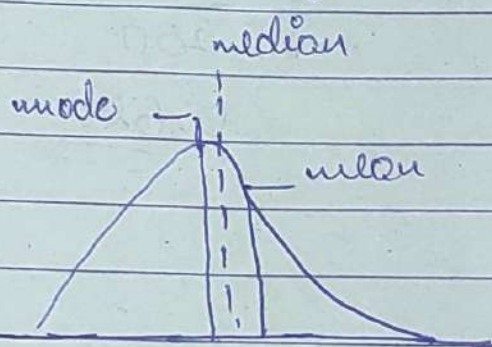 median
mode
mean